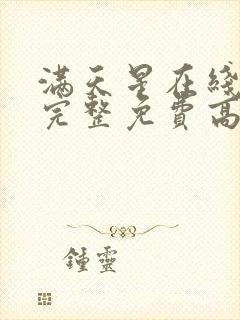 满天星在綫
完整免費高
鍾靈